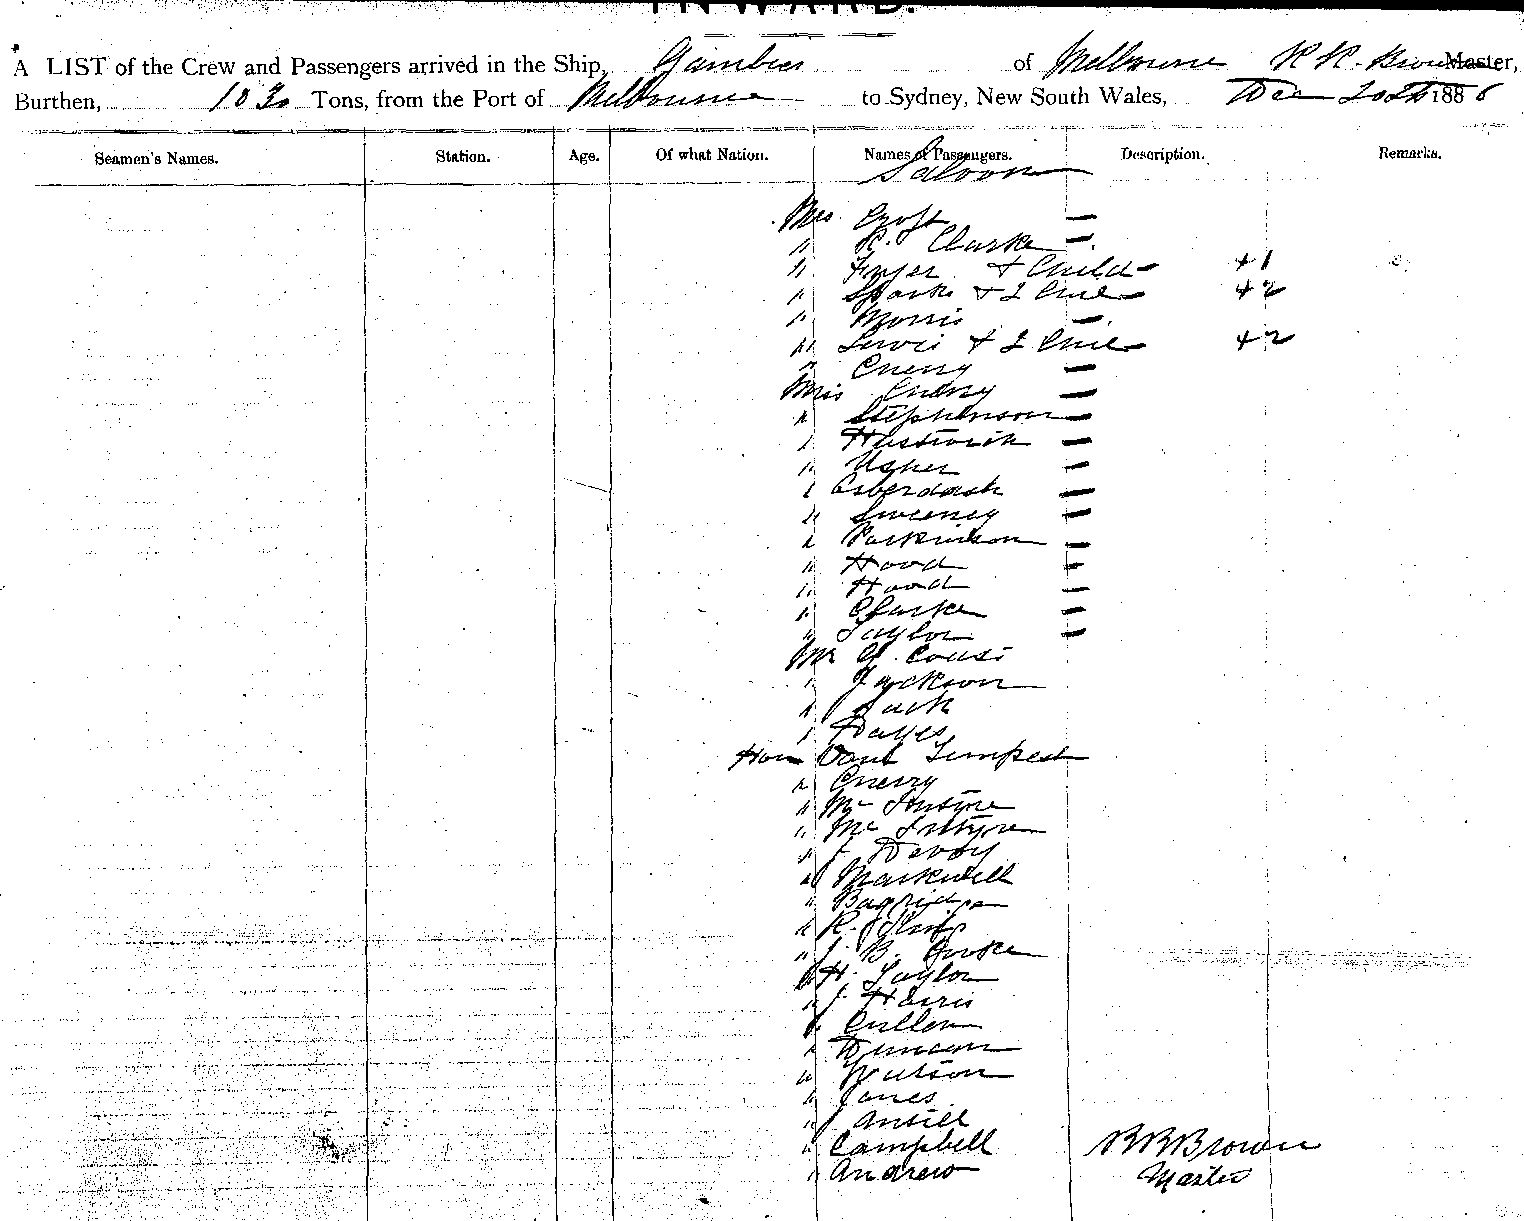 INWARD.
A LIST of the Crew and Passengers arrived in the Ship, Gambier of Melbourne R R. Brown Master,
Burthen, Tons, from the Port of Melbourne to Sydney, New South Wales, Dec 20th 1886
Seamen's Names. Station. Age. Of what Nation. Names of Passengers. Description. Remarks.
Saloon
Mrs Croft —
" R. Clarke —
" Fryer & Child — +1
" Spark & 2 Chil — +2
" Morris —
" Lewis & 2 Chil — +2
" Cherry —
Miss Cherry —
" Stephenson —
" —
" Usher —
" —
" Sweeney —
" Parkinson —
" Hood —
" Hood —
" Clarke —
" Taylor —
Mr
" Jackson
"
"
Hon Vane Tempest
" Cherry
" McIntyre
" McIntyre
" J. Devoy
" Markwell
"
" R.
" J. B.
" H. Taylor
" J. Harris
" Cullen
" Duncan
" Watson
" Jones
" Ansell
" Campbell RRBrown
" Andrew Master